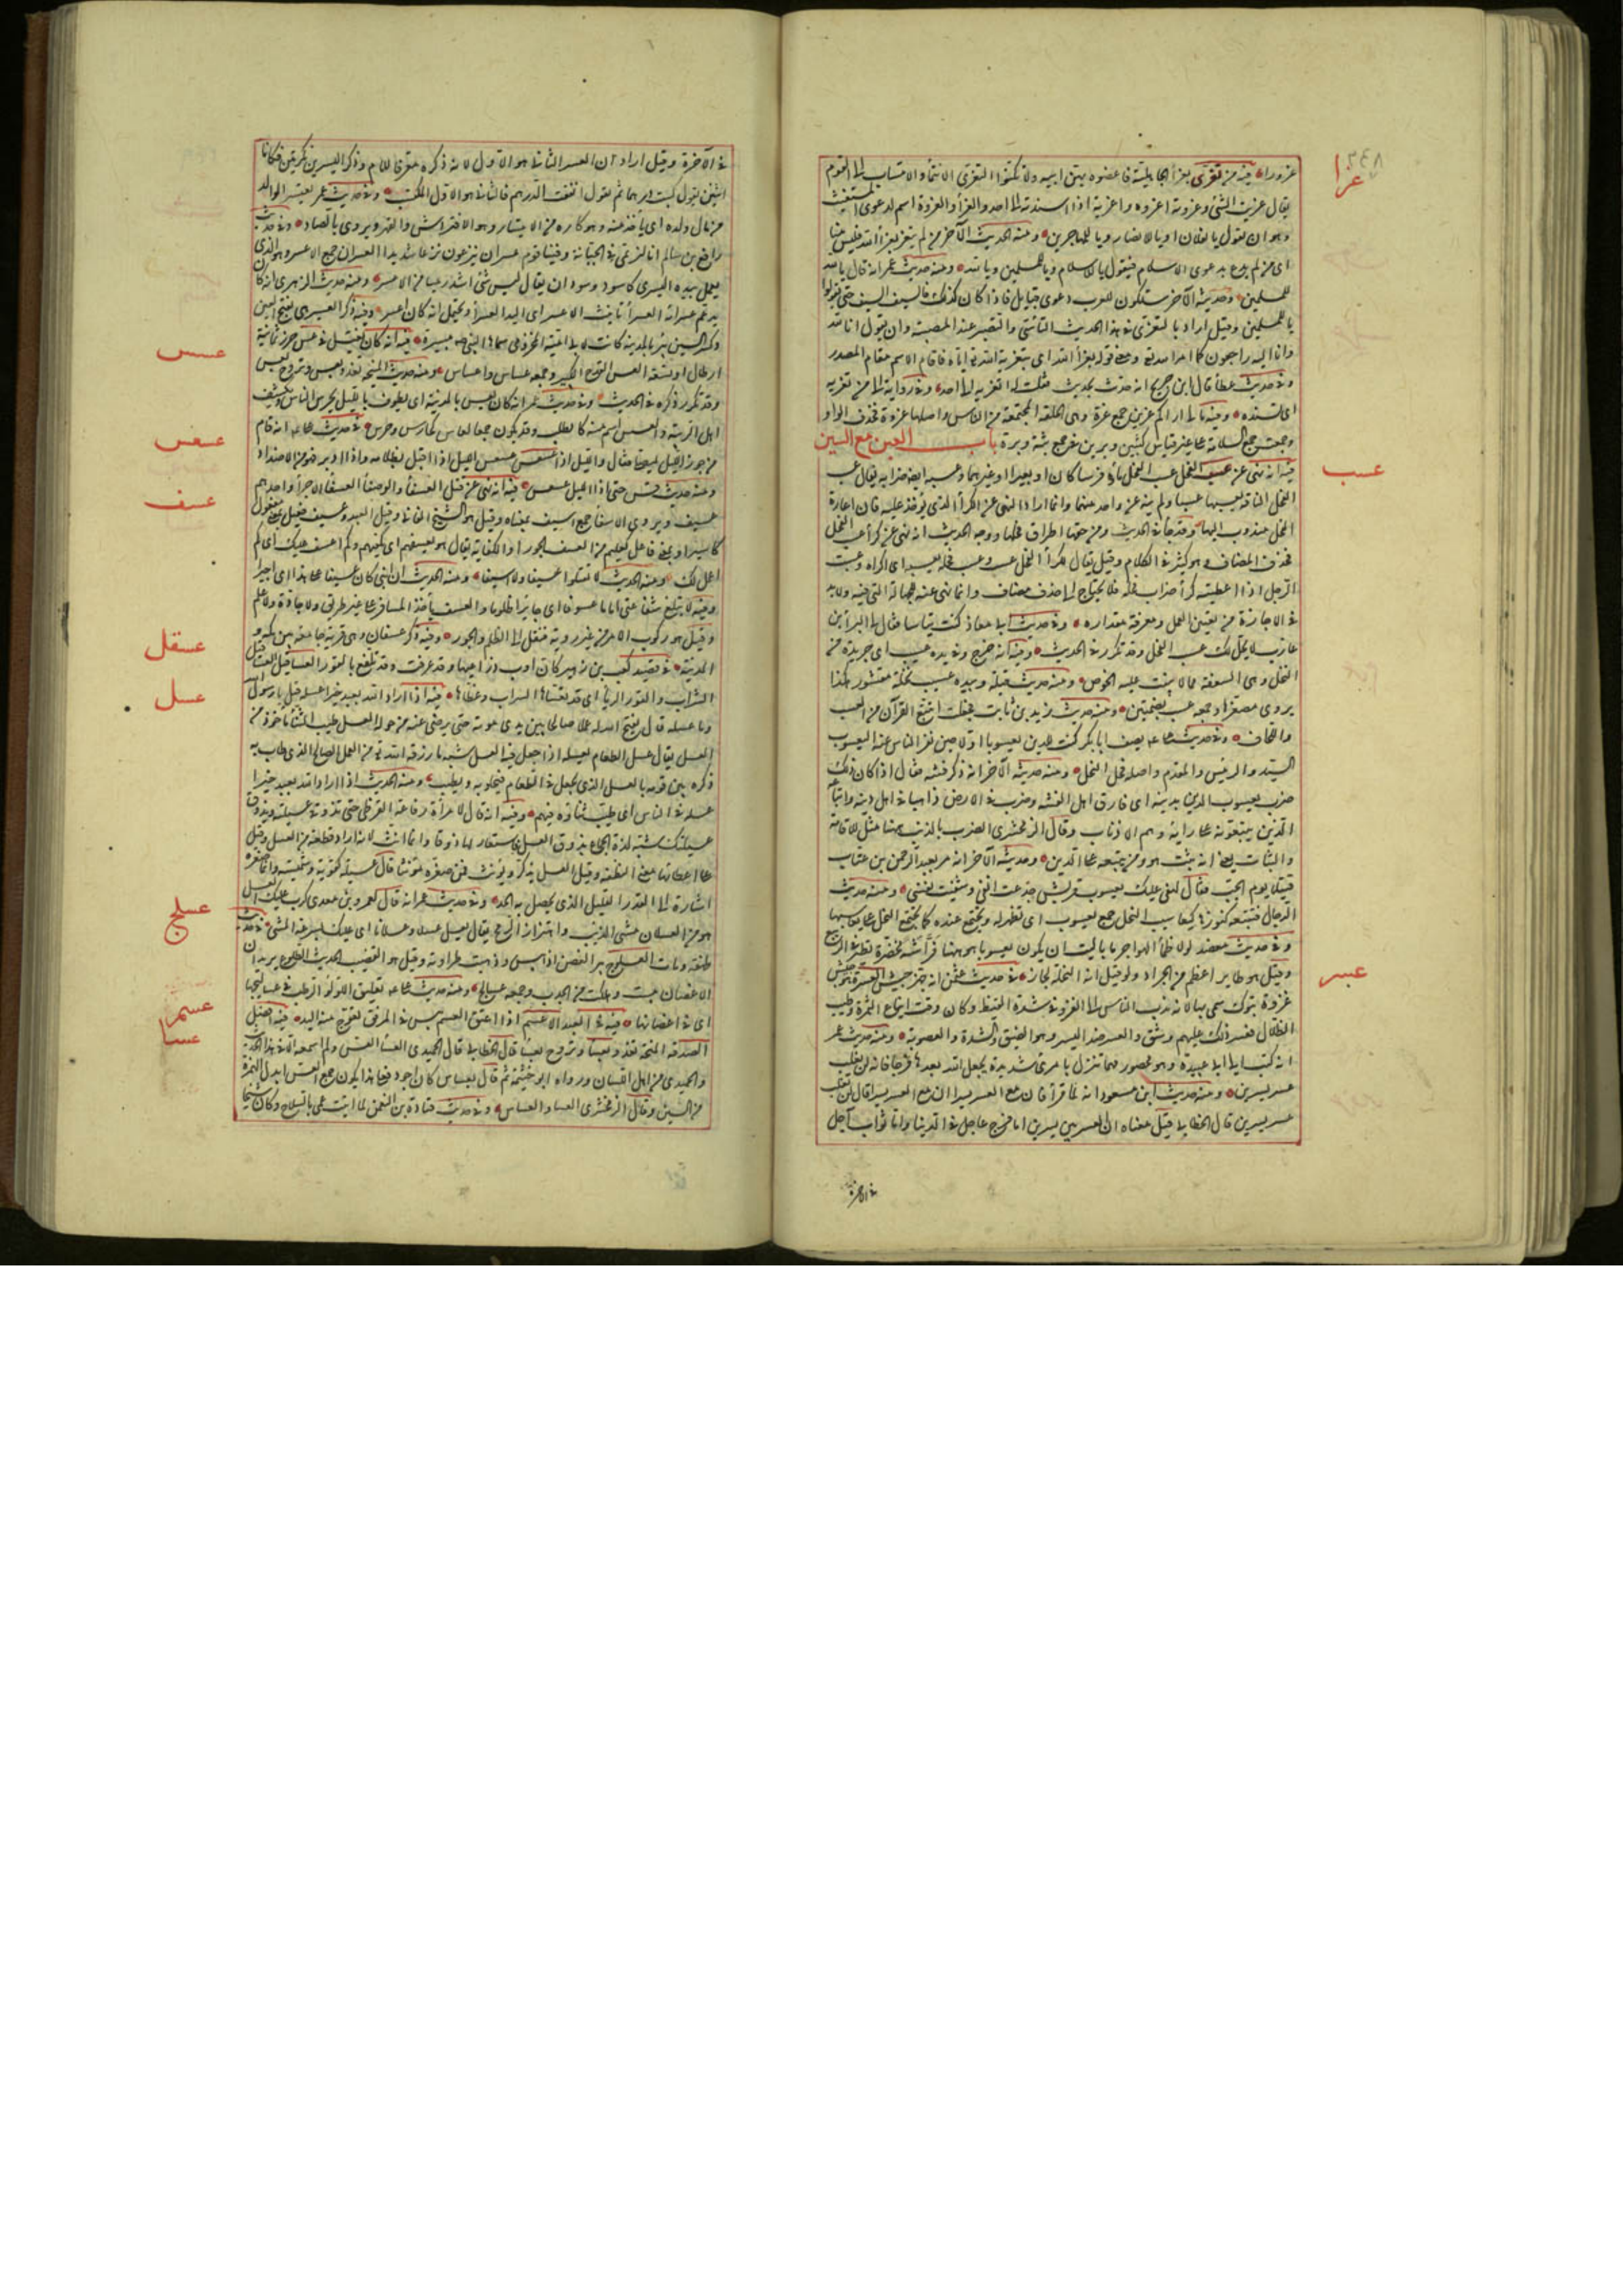 ٣٤٨
عزا
عزورا فيه من تعزى بعزاء الجاهلية فاعضوه بهن ابيه ولا تكنوا التعزى الانتماء والانتساب الى القوم
يقال عزيت الشئ وعزوته اعزوه واعزيه اذا اسندته الى احد والعزاء والعزوة اسم لدعوى المستغيث
وهو ان يقول يا لفلان او يا للانصار ويا للمهاجرين ومنه الحديث الآخر من لم يتعز بعزاء الله فليس منا
اى من لم يدع بدعوى الاسلام فيقول يا للاسلام ويا للمسلمين ويا لله ومنه حديث عمر انه قال يا لله
للمسلمين وحديثه الآخر ستكون للعرب دعوى قبايل فاذا كان كذلك فالسيف السيف حتى يقولوا
يا للمسلمين وقيل اراد بالتعزى فى هذا الحديث التأسّى والتصبر عند المصيبة وان يقول انا لله
وانا اليه راجعون كما امر الله تع ومعنى قوله بعزاء الله اى بتعزية الله تع اياه فاقام الاسم مقام المصدر
وفى حديث عطاء قال ابن جريج انه حدث بحديث فقلت له اتعزيه الى احد وفى رواية الى من تعزيه
اى تسنده وفيه مالى اراكم عزين جمع عزة وهى الحلقة المجتمعة من الناس واصلها عزوة فحذف الواو
وجمعت جمع السلامة على غير قياس كثبين وبرين فى جمع ثبة وبرة باب العين مع السين
عسب
فيه انه نهى عن عسب الفحل عسب الفحل ماؤه فرسا كان او بعيرا او غيرهما وعسبه ايضا ضرابه يقال عسب
الفحل الناقة يعسبها عسبا ولم ينه عن واحد منهما وانما اراد النهى عن الكراء الذى يؤخذ عليه فان اعارة
الفحل مندوب اليها وقد جاء فى الحديث ومن حقها اطراق فحلها ووجه الحديث انه نهى عن كراء عسب الفحل
فحذف المضاف وهو كثير فى الكلام وقيل يقال لكراء الفحل عسب وعسب فحله يعسبه اى اكراه وعسبت
الرجل اذا اعطيته كراء ضراب فحله فلا يحتاج الى حذف مضاف وانما نهى عنه للجهالة التى فيه ولا بد
فى الاجارة من تعيين العمل ومعرفة مقداره وفى حديث ابى معاذ كنت تياسا فقال لى البراء بن
عازب لا يحل لك عسب الفحل وقد تكرر فى الحديث وفيه انه خرج وفى يده عسيب اى جريدة من
النخل وهى السعفة مما لا ينبت عليه الخوص ومنه حديث قيلة وبيده عسيب نخلة مقشور كذا
يروى مصغرا وجمعه عسب بضمتين ومنه حديث زيد بن ثابت فجعلت اتتبع القرآن من العسب
واللخاف وفى حديث على يصف ابا بكر كنت للدين يعسوبا اولا حين نفر الناس عنه اليعسوب
السيد والرئيس والمقدم واصله فحل النحل ومنه حديثه الآخر انه ذكر فتنة فقال اذا كان ذلك
ضرب يعسوب الدين بذنبه اى فارق اهل الفتنة وضرب فى الارض ذاهبا فى اهل دينه واتباعه
الذين يتبعونه على رايه وهم الاذناب وقال الزمخشرى الضرب بالذنب ههنا مثل للاقامة
والثبات يعنى انه يثبت هو ومن يتبعه على الدين وحديثه الآخر انه مر بعبد الرحمن بن عتاب
قتيلا يوم الجمل فقال لهفى عليك يعسوب قريش جدعت انفى وشفيت نفسى ومنه حديث
الدجال فتتبعه كنوزها كيعاسيب النحل جمع يعسوب اى تظهر له وتجتمع عنده كما تجتمع النحل على يعاسيبها
وفى حديث معضد لولا ظمأ الهواجر ما باليت ان اكون يعسوبا هو ههنا فراشة مخضرة تطير فى الربيع
عسر
وقيل هو طاير اعظم من الجراد ولو قيل انه النحلة لجاز فى حديث عثمن انه جهز جيش العسرة هو جيش
غزوة تبوك سمى بها لانه ندب الناس الى الغزو فى شدة القيظ وكان وقت ايناع الثمرة وطيب
الظلال فعسر ذلك عليهم وشق والعسر ضد اليسر وهو الضيق والشدة والصعوبة ومنه حديث عمر
انه كتب الى ابى عبيدة وهو محصور مهما تنزل بامرئ شديدة يجعل الله بعدها فرجا فانه لن يغلب
عسر يسرين ومنه حديث ابن مسعود انه لما قرأ فان مع العسر يسرا ان مع العسر يسرا قال لن يغلب
عسر يسرين قال الخطابى قيل معناه ان العسر بين يسرين اما فرج عاجل فى الدنيا واما ثواب آجل
فى الآخرة
فى الآخرة وقيل اراد ان العسر الثانى هو الاول لانه ذكره معرفا باللام وذكر اليسرين نكرتين فكانا
اثنين تقول كسبت درهما ثم تقول انفقت الدرهم فالثانى هو الاول المكتسب وفى حديث عمر يعتسر الوالد
من مال ولده اى يأخذ منه وهو كاره من الاعتسار وهو الافتراس والقهر ويروى بالصاد وفى حديث
رافع بن سالم انا لنرتمى فى الجبانة وفينا قوم عسران ينزعون نزعا شديدا العسران جمع الاعسر وهو الذى
يعمل بيده اليسرى كاسود وسودان يقال ليس شئ اشد رميا من الاعسر ومنه حديث الزهرى انه كان
يدعم على عسرائه العسراء تانيث الاعسر اى اليد العسراء ويحتمل انه كان اعسر وفيه ذكر العسير هى بفتح العين
عسس
وكسر السين بئر بالمدينة كانت لابى امية المخزومى سماها النبى ص يسيرة فيه انه كان يغتسل فى عس حزر ثمانية
ارطال او تسعة العس القدح الكبير وجمعه عساس واعساس ومنه حديث المنحة تغدو بعس وتروح بعس
وقد تكرر ذكره فى الحديث وفى حديث عمر انه كان يعس بالمدينة اى يطوف بالليل يحرس الناس ويكشف
عسعس
اهل الريبة والعسس اسم منه كالطلب وقد يكون جمعا لعاس كحارس وحرس فى حديث على انه قام
من جوز الليل ليصلى فقال والليل اذا عسعس عسعس الليل اذا اقبل بظلامه واذا ادبر فهو من الاضداد
عسف
ومنه حديث قس حتى اذا الليل عسعس فيه انه نهى عن قتل العسفاء والوصفاء العسفاء الاجراء واحدهم
عسيف ويروى الاسفاء جمع اسيف بمعناه وقيل هو الشيخ الفانى وقيل العبد وعسيف فعيل بمعنى مفعول
كاسير او بمعنى فاعل كعليم من العسف الجور او الكفاية يقال هو يعسفهم اى يكفيهم وكم اعسف عليك اى كم
اعمل لك ومنه الحديث لا تقتلوا عسيفا ولا اسيفا ومنه الحديث ان ابنى كان عسيفا على هذا اى اجيرا
وفيه لا تبلغ شفاعتى اماما عسوفا اى جايرا ظلوما والعسف ان يأخذ المسافر على غير طريق ولا جادة ولا علم
عسقل
وقيل هو ركوب الامر من غير روية فنقل الى الظلم والجور وفيه ذكر عسفان وهى قرية جامعة بين مكة و
المدينة فى قصيد كعب بن زهير كان اوب ذراعيها وقد عرقت وقد تلفع بالقور العساقيل العساقيل
عسل
السراب والقور الربى اى قد تغشاها السراب وغطاها فيه اذا اراد الله بعبد خيرا عسله قيل يا رسول الله
وما عسله قال يفتح الله له عملا صالحا بين يدى موته حتى يرضى عنه من حوله العسل طيب الثناء مأخوذ من
العسل يقال عسل الطعام يعسله اذا جعل فيه العسل شبه ما رزقه الله تع من العمل الصالح الذى طاب به
ذكره بين قومه بالعسل الذى يجعل فى الطعام فيحلو به ويطيب ومنه الحديث اذا اراد الله بعبد خيرا
عسله فى الناس اى طيب ثناءه فيهم وفيه انه قال لامرأة رفاعة القرظى حتى تذوقى عسيلته ويذوق
عسيلتك شبه لذة الجماع بذوق العسل فاستعار لها ذوقا وانما انث لانه اراد قطعة من العسل وقيل
على اعطائها معنى النطفة وقيل العسل يذكر ويؤنث فمن صغره مؤنثا قال عسيلة كقويسة وشميسة وانما صغره
اشارة الى القدر القليل الذى يحصل به الحل وفى حديث عمر انه قال لعمرو بن معدى كرب عليك العسل
عسلج
هو من العسلان مشى الذئب واهتزاز الرمح يقال عسل يعسل عسلا وعسلانا اى عليك بسرعة المشى فى حديث
طهفة ومات العسلوج هو الغصن اذا يبس وذهبت طراوته وقيل هو القضيب الحديث الطلوع يريد ان
الاغصان يبست وهلكت من الجدب وجمعه عساليج ومنه حديث على تعليق اللؤلؤ الرطب فى عساليجها
عسم
اى فى اغصانها فيه فى العبد الاعسم اذا اعتق العسم يبس فى المرفق تعوج منه اليد فيه افضل
عسا
الصدقة المنحة تغدو بعساء وتروح بعساء قال الخطابى قال الحميدى العساء العس ولم اسمعه الا فى هذا الحديث
والحميدى من اهل اللسان ورواه ابو خيثمة ثم قال بعساس كان اجود فعلى هذا يكون جمع العس ابدل الهمزة
من السين وقال الزمخشرى العساء والعساس وفى حديث قتادة بن النعمن لما اتيت عمى بالسلاح وكان شيخا